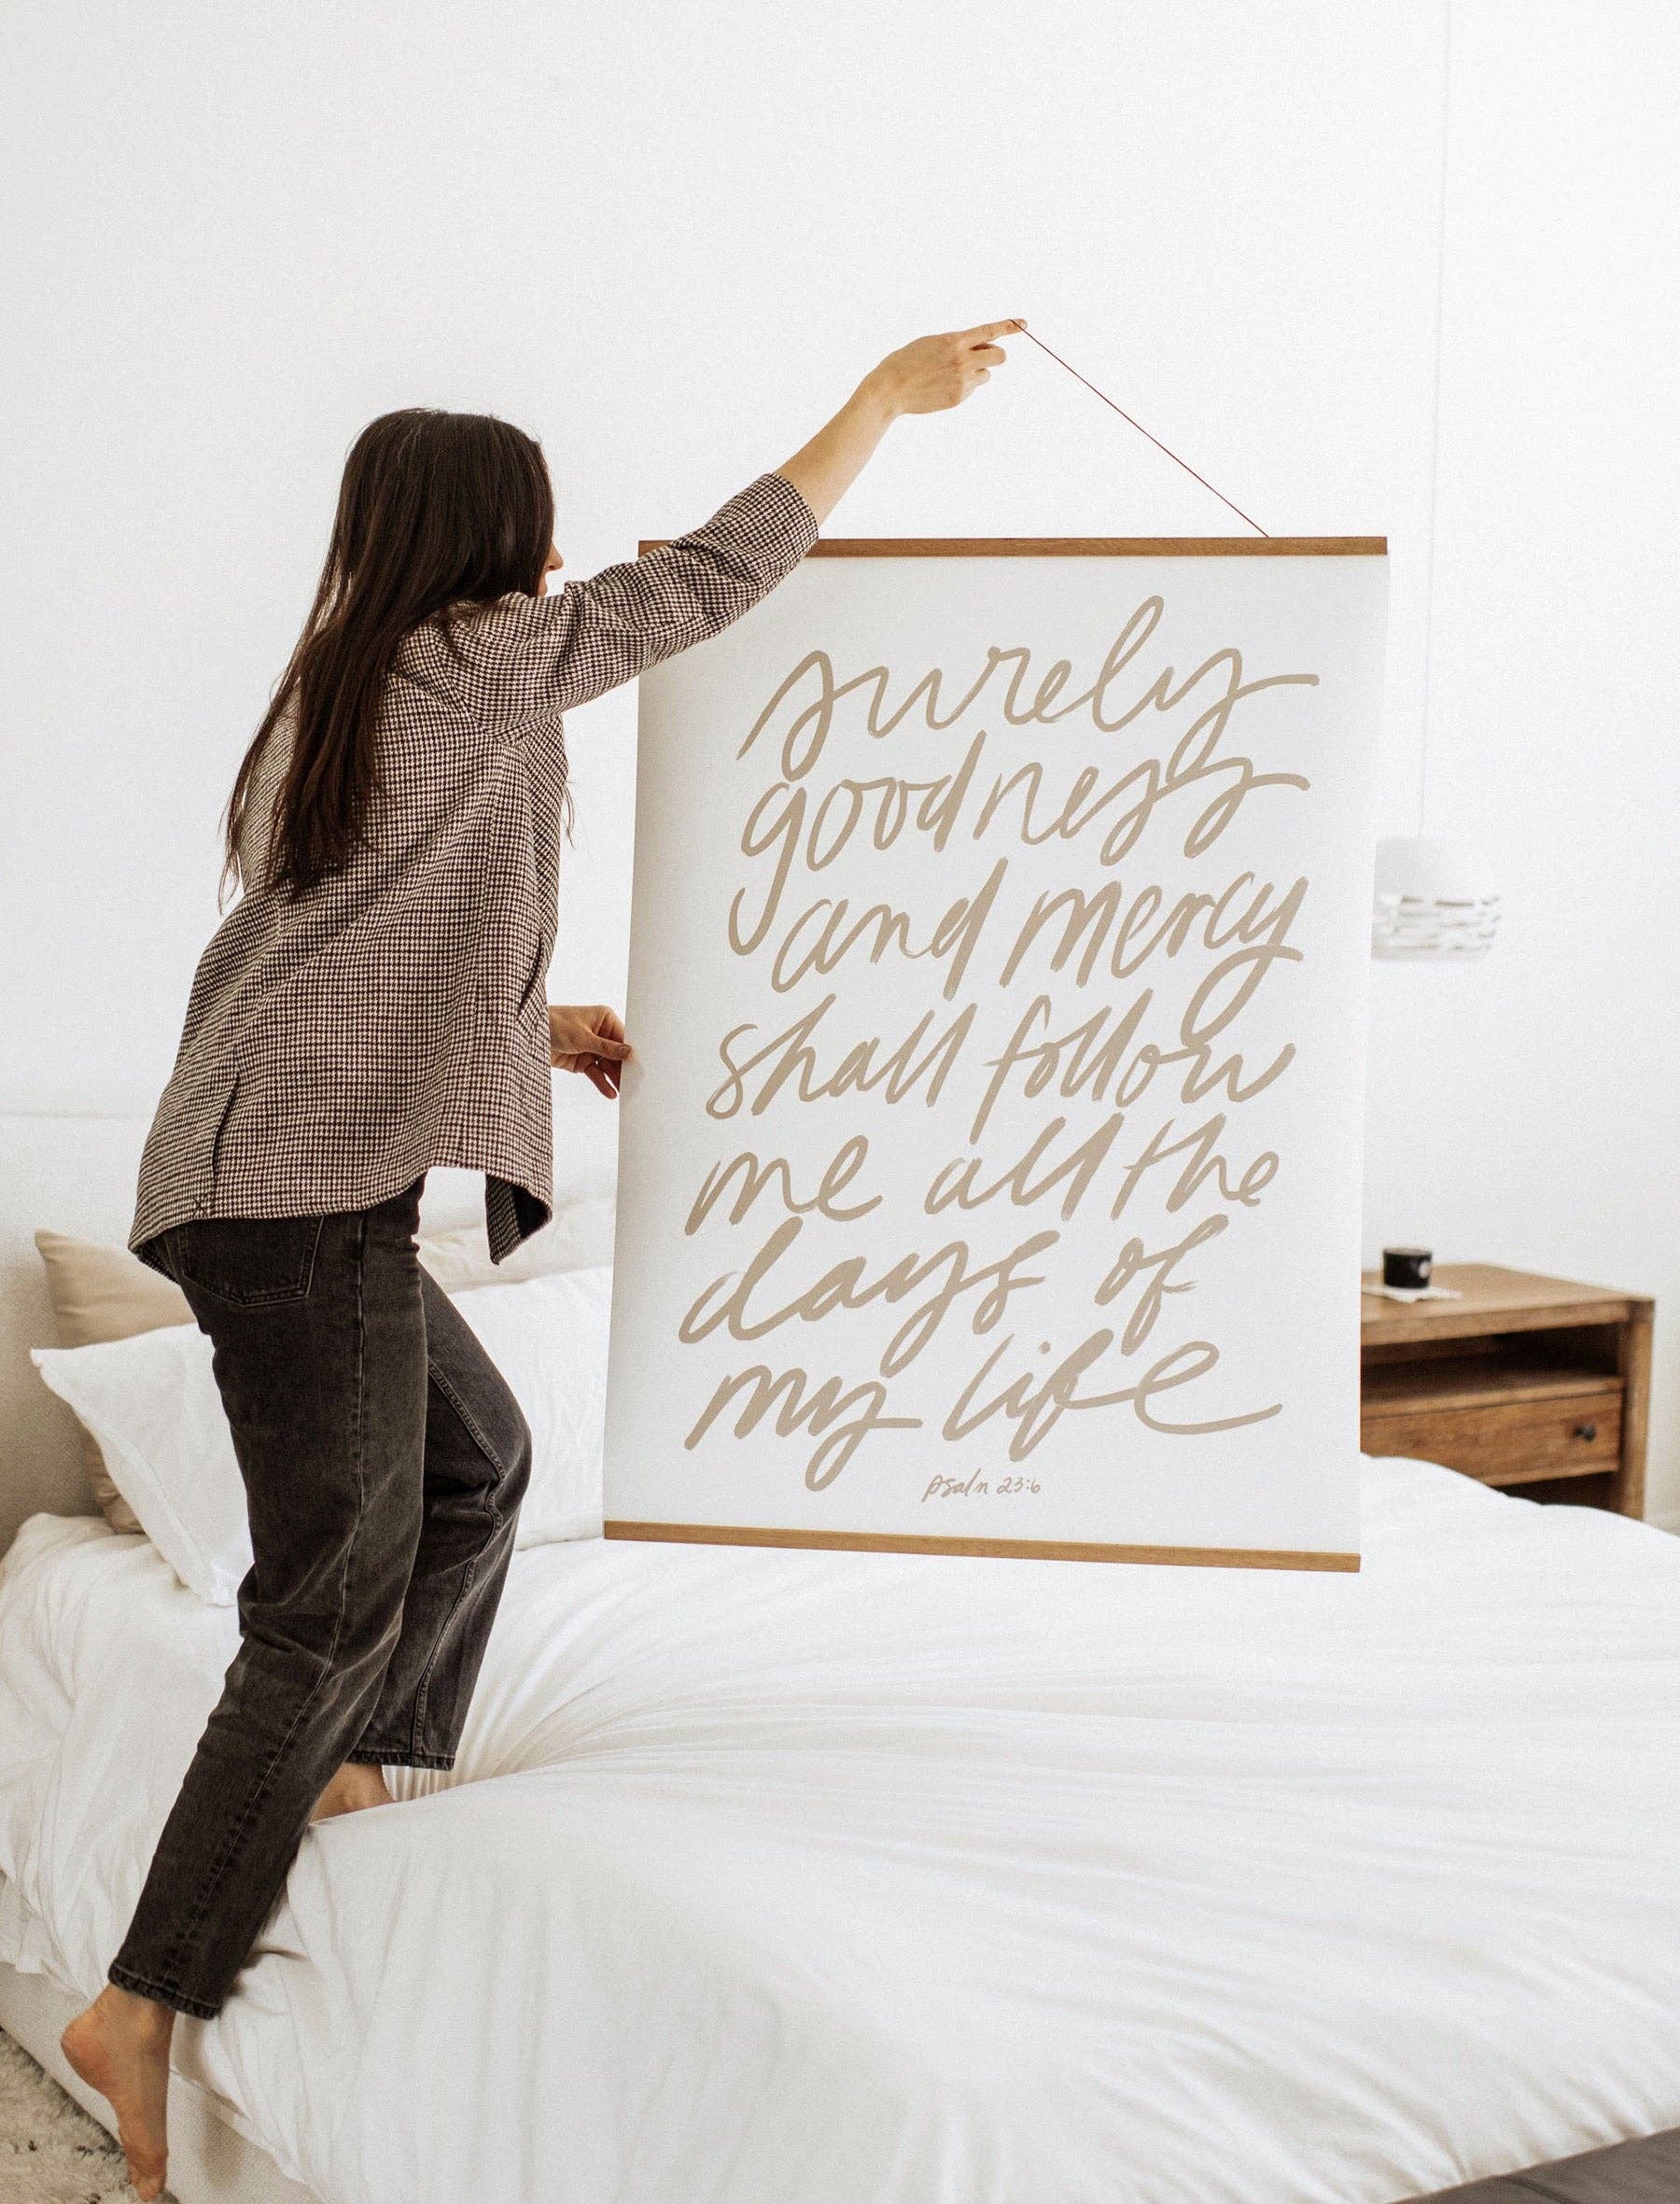 surely
goodness
and mercy
shall follow
me all the
days of
my life
psalm 23:6